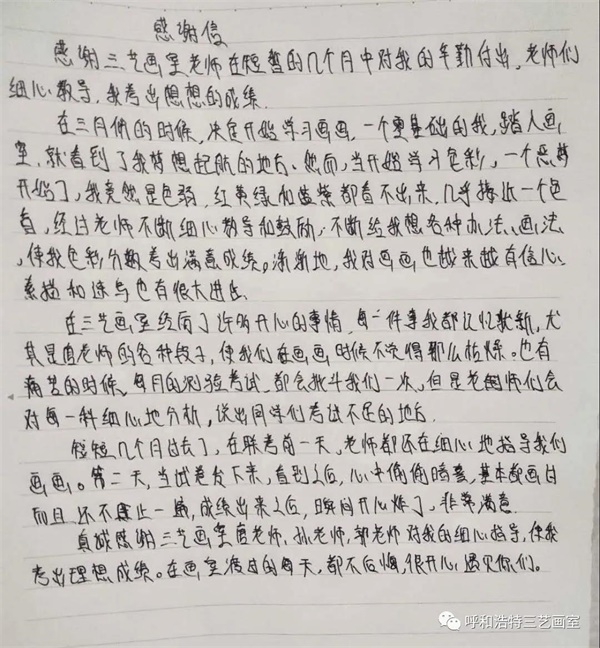 感谢信
感谢三艺画室老师在短暂的几个月中对我的辛勤付出,老师们
细心教导,我考出想想的成绩.
在三月份的时候,决定开始学习画画,一个零基础的我,踏入画
室,就看到了我梦想起航的地方、然而,当开始学习色彩,一个恶梦
开始了,我竟然是色弱,红黄绿和蓝紫都看不出来,几乎接近一个色
盲,经过老师不断细心教导和鼓励,不断给我想各种办法、画法,
,使我色彩分数考出满意成绩。渐渐地,我对画画也越来越有信心、
素描和速写也有很大进步、
在三艺画室经历了许多开心的事情,每一件事我都记忆犹新,尤
其是唐老师的各种段子,使我们在画画时候不觉得那么枯燥。也有
痛苦的时候,每月的测验考试,都会批斗我们一次,但是老师们会
对每一科细心地分析,说出同学们考试不足的地方.
短短几个月过去了,在联考前一天,老师都还在细心地指导我们
画画。第二天,当试卷发下来,看到之后,心中偷偷暗喜,基本都画过
而且还不止一遍,成绩出来之后,瞬间开心炸了,非常满意.
真诚感谢三艺画室唐老师,孙老师,郭老师对我的细心指导,使我
考出理想成绩。在画室渡过的每天,都不后悔,很开心遇见你们。
呼和浩特三艺画室